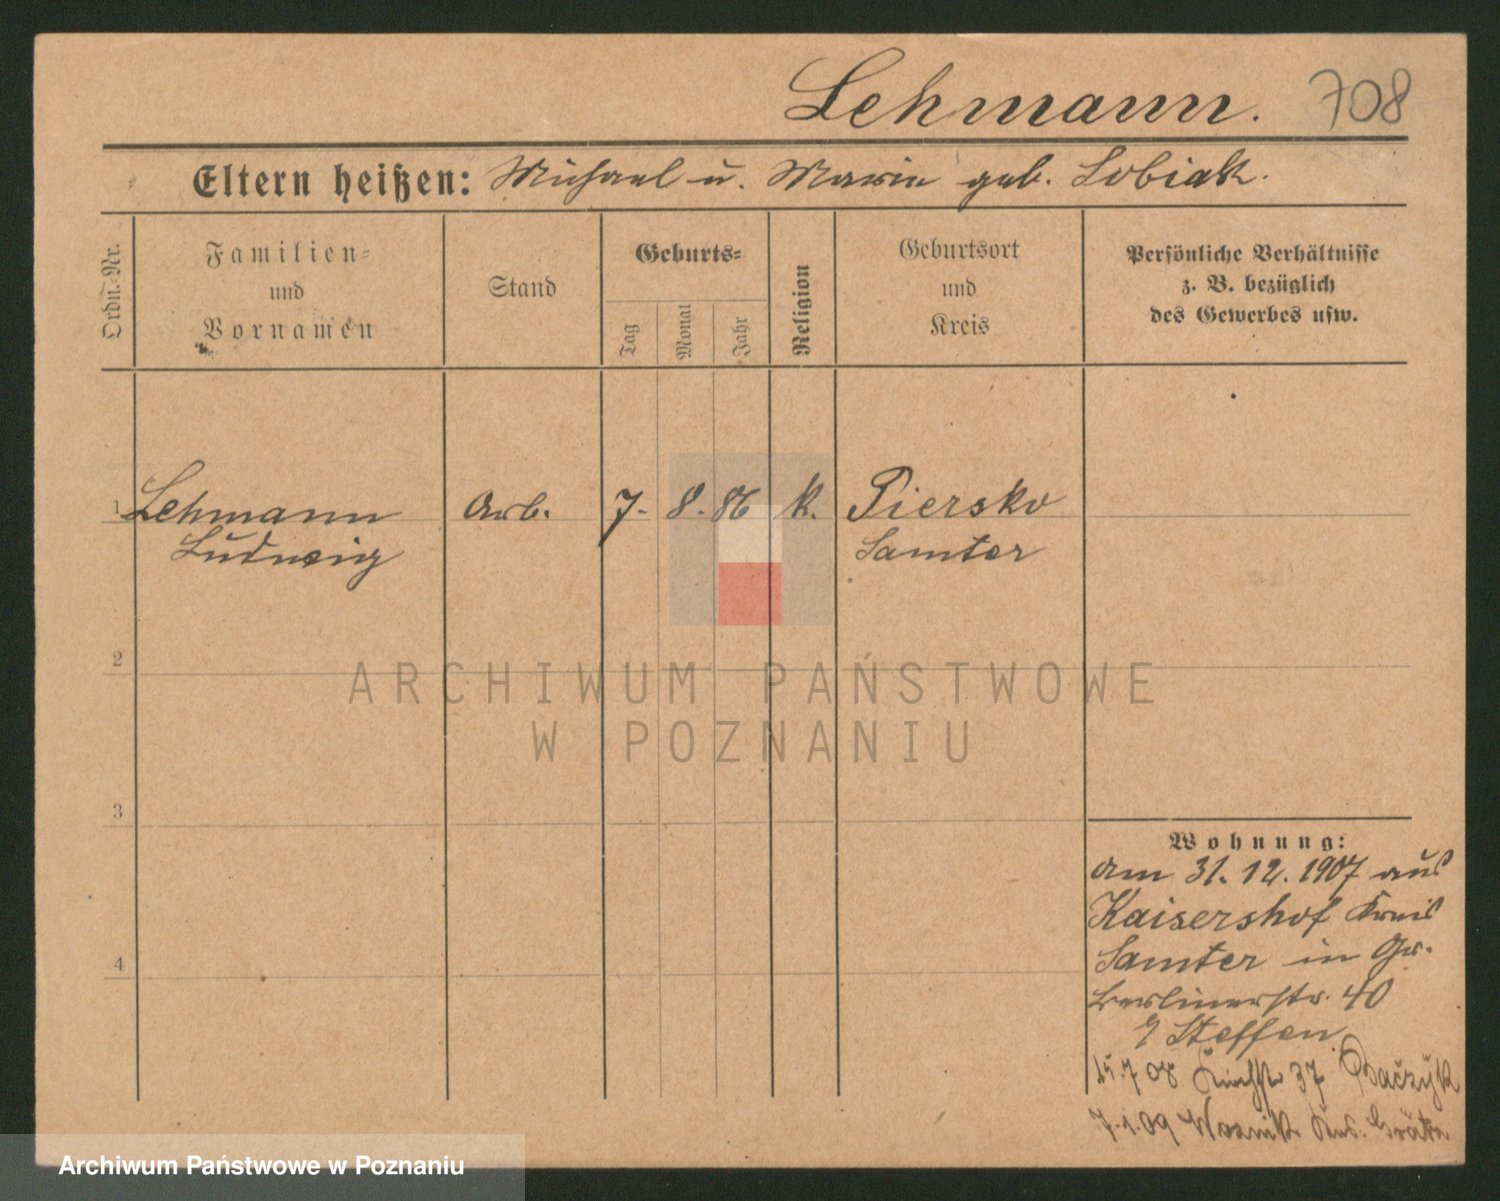 Lehmann. 708
Eltern heißen: Michael u. Marie geb. Sobiak.
Ordn.-Nr.
Familien-
und
Vornamen
Stand
Geburts-
Tag
Monat
Jahr
Religion
Geburtsort
und
Kreis
Persönliche Verhältnisse
z. B. bezüglich
des Gewerbes usw.
1 Lehmann Arb. 7. 8. 86 k. Piersko
Ludwig Samter
2
ARCHIWUM PAŃSTWOWE
W POZNANIU
3
Wohnung:
am 31. 12. 1907 aus
Kaisershof Kreis
Samter in Gr.
Berlinerstr. 40
Steffen
15.7 08 Kirchstr 37
7.1.09 Woznik Krs. Grätz
4
Archiwum Państwowe w Poznaniu